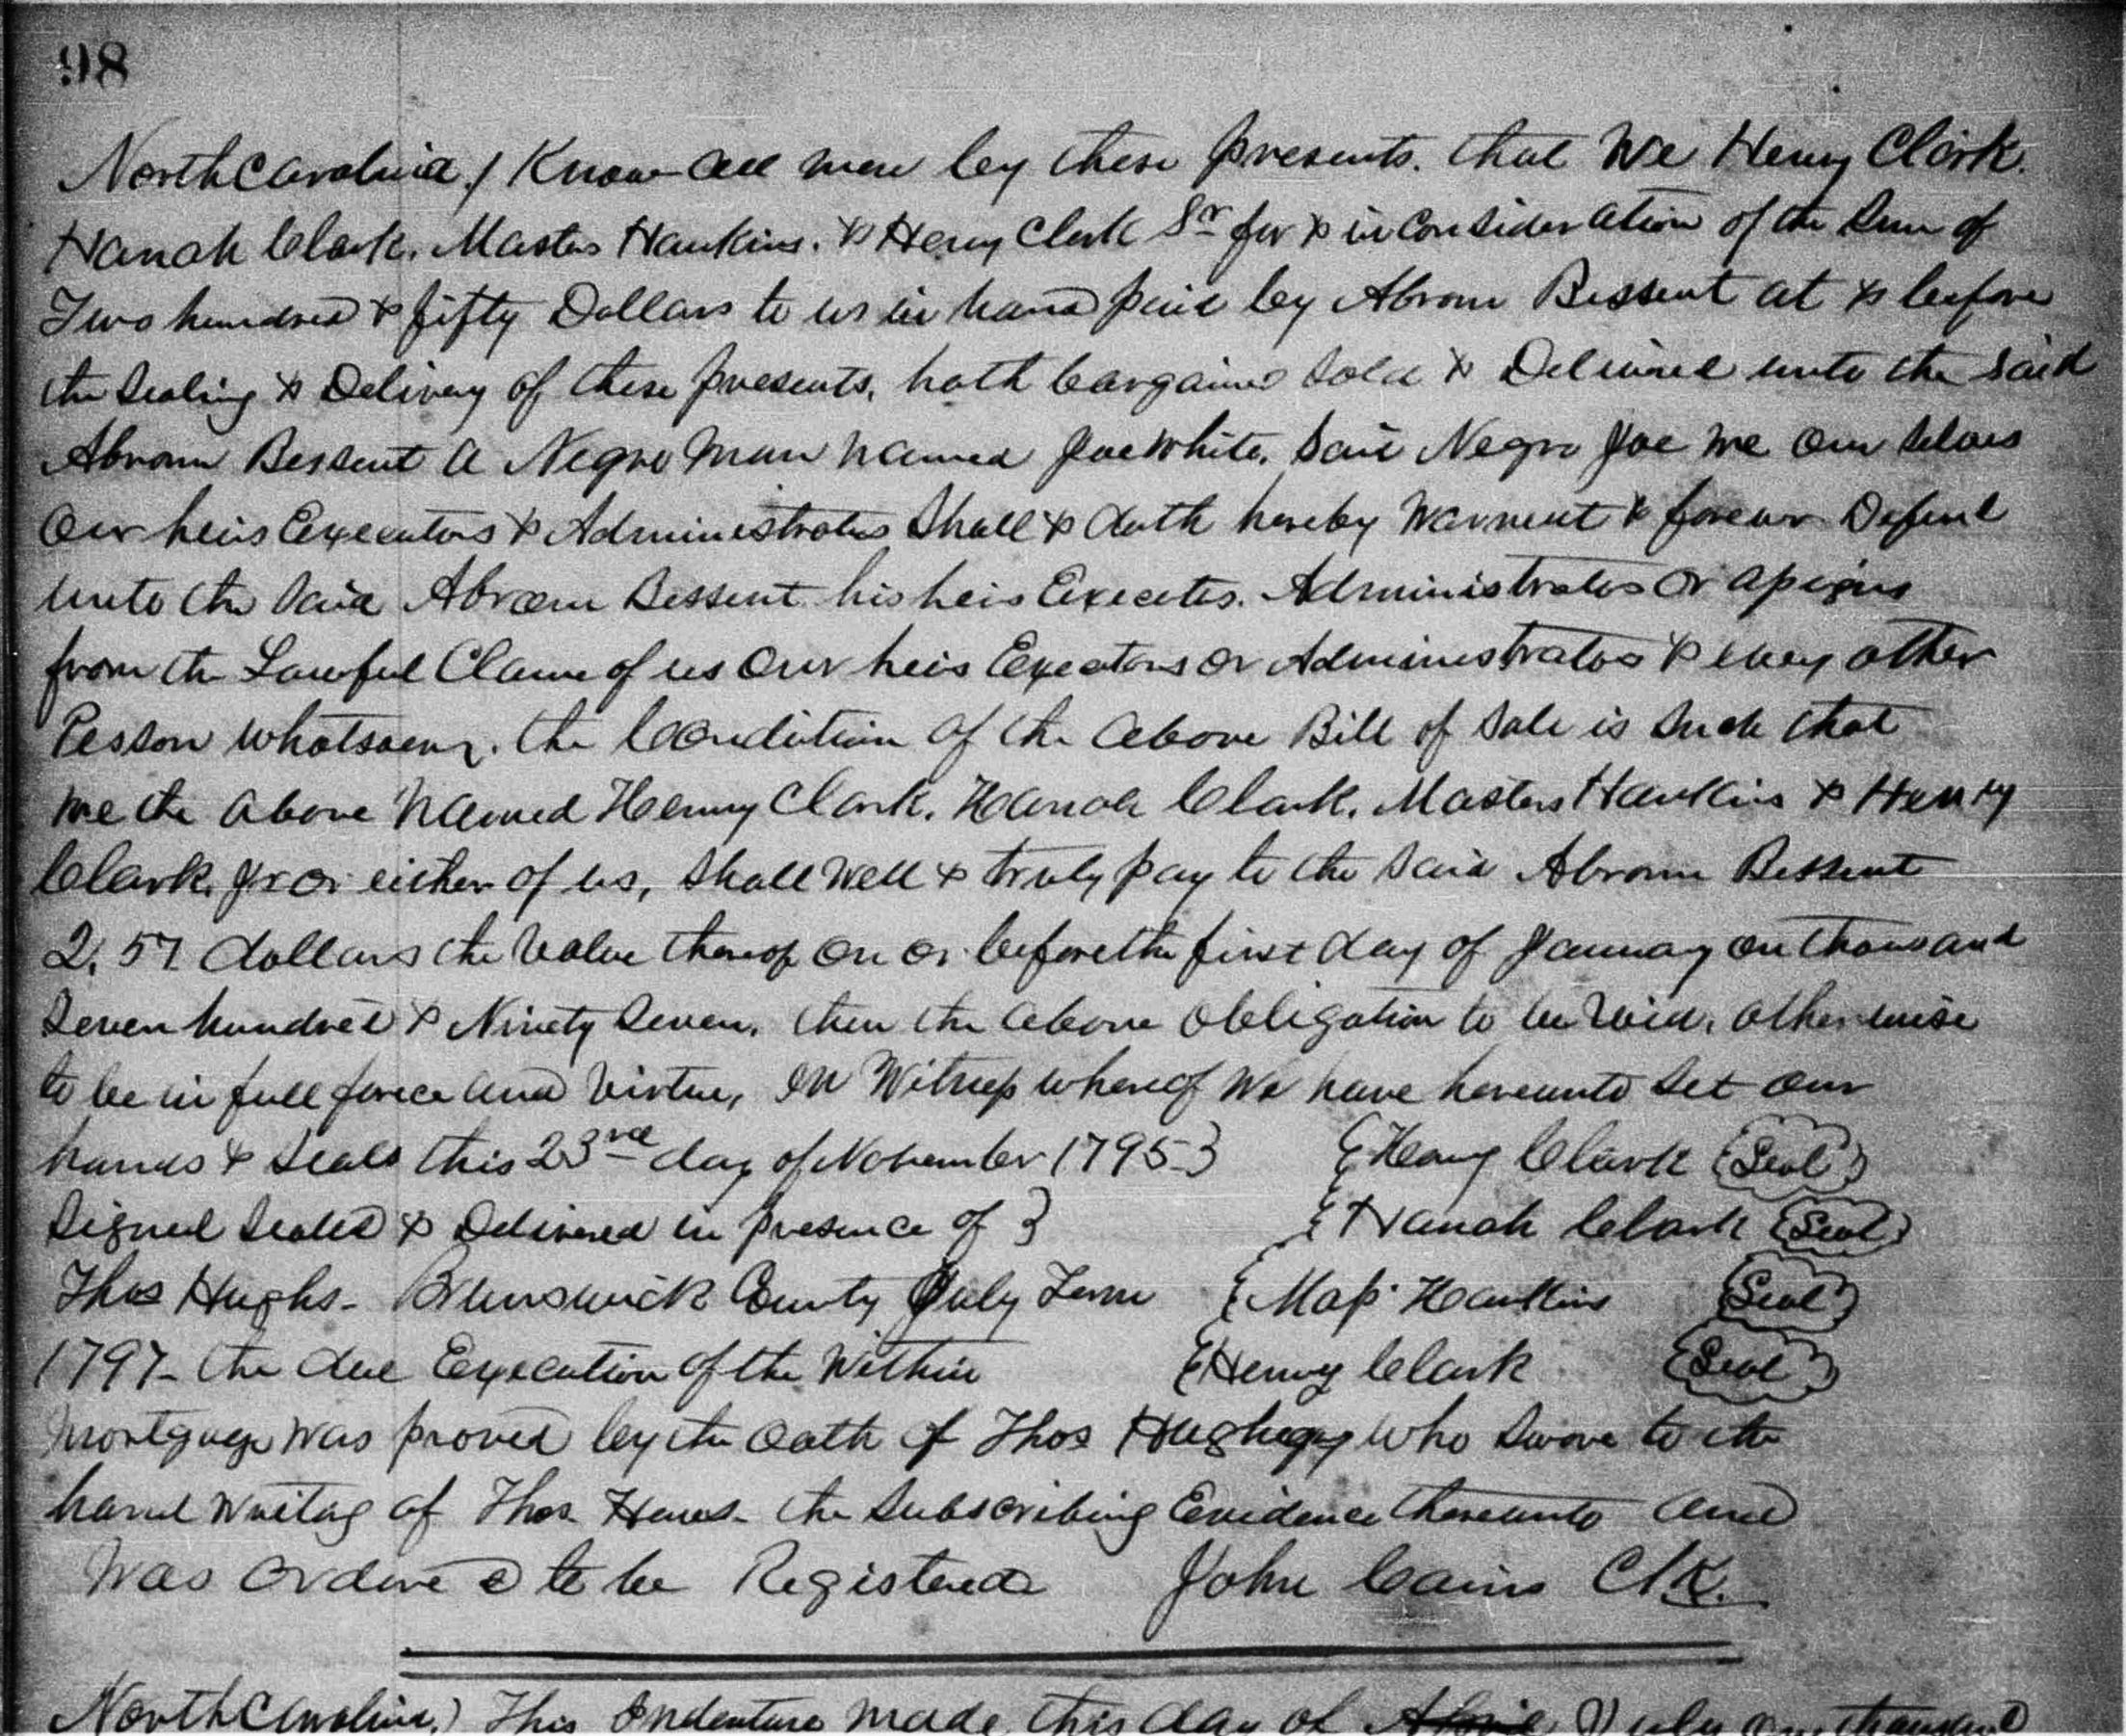 98
North Carolina } Know all men by these presents. that We Henry Clark.
Hanah Clark, Masters Hankins. & Henry Clark Sr for & in Consideration of the Sum of
Two hundred & fifty Dollars to us in hand paid by Abram Bessent at & before
the Sealing & Delivery of these presents, hath bargained Sold & Delivered unto the Said
Abram Bessent a Negro man named Joe White. Said Negro Joe we our Selves
Our heirs Executors & Administrators Shall & doth hereby Warrent & forever Defend
unto the Said Abram Bessent his heirs Executes. Administrators or assigns
from the Lawful Claim of us Our heirs Executors or Administrators & every other
Person whatsoever. the Condition of the above Bill of Sale is Such that
we the above Named Henny Clark. Hanah Clark. Masters Hankins & Henry
Clark, Jr or either of us, Shall Well & truly pay to the Said Abram Bessent
2,57 dollars the Value thereof on or before the first day of January on thousand
Seven hundred & Ninety Seven, then the above Obligation to be Void, otherwise
to be in full force and Virtue, In Witness whereof We have hereunto Set our
hands & Seals this 23rd day of November 1795 } { Henry Clark {Seal}
Signed Sealed & Delivered in presence of } { Hanah Clark {Seal}
Thos Hughs- Brunswick County July Term { Mass. Hankins {Seal}
1797- the due Execution of the Within { Henry Clark {Seal}
mortguage was proved by the oath of Thos who Swore to the
hand Writag of Thos the Subscribing Evidence thereunto and
was ordered to be Registered John Cains Clk.
North Carolina } This Indenture made this day of July one thousand